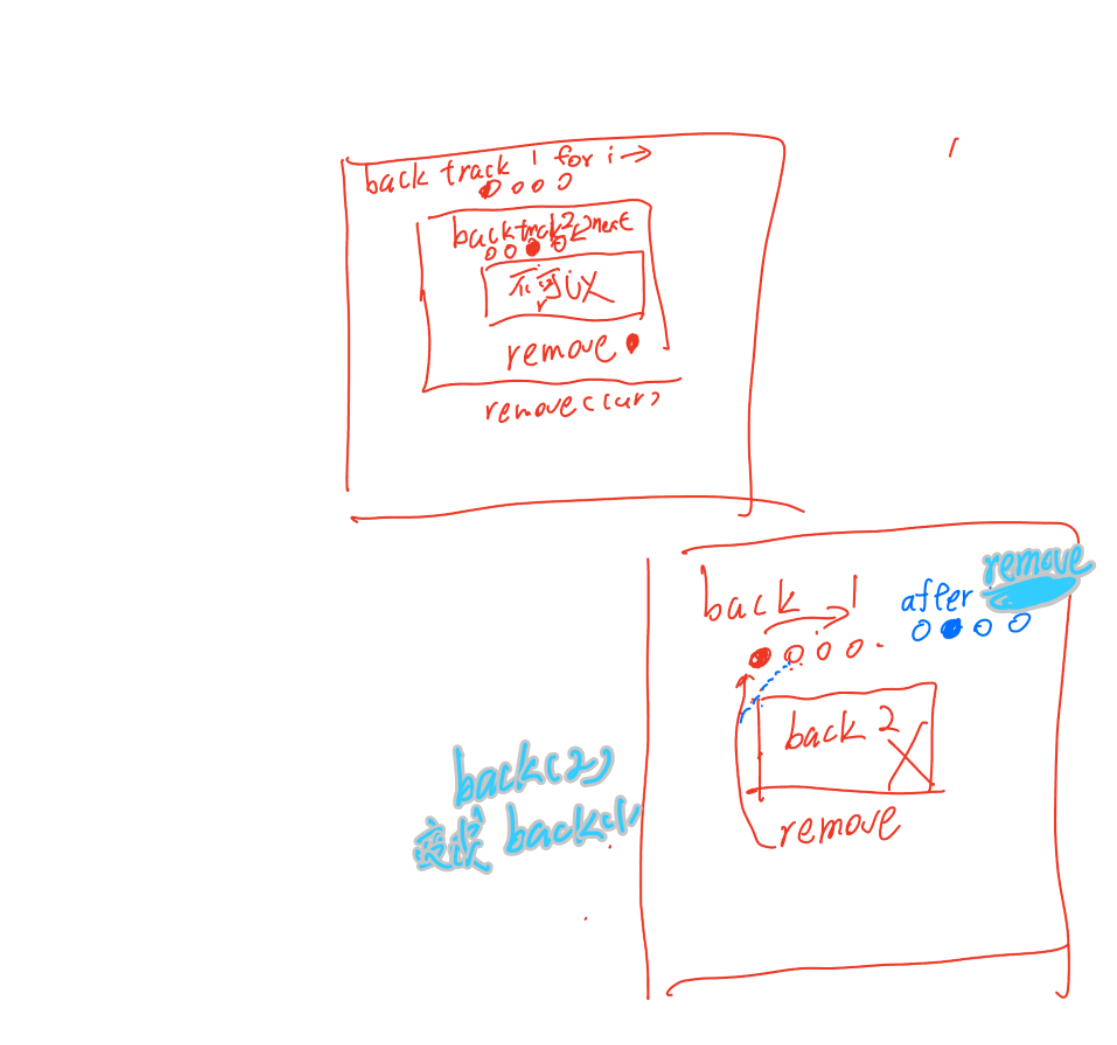 back track 1 for i →
backtrack2 next
不可以
remove
remove(cur)
back 1
after remove
back 2
remove
back(2)
变成 back(1)